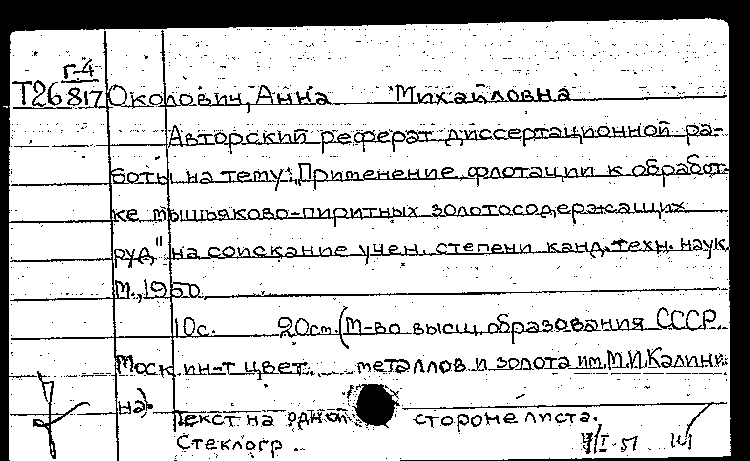 Г-4
Т26817 Околович, Анна Михайловна
Авторский реферат диссертационной ра-
боты на тему: „Применение флотации к обработ-
ке мышьяково-пиритных золотосодержащих
руд" на соискание учен. степени канд. техн. наук.
М., 1950.
10с. 20см. (М-во высш. образования СССР.
Моск. ин-т цвет. металлов и золота им. М.И. Калини-
на).
Текст на одной стороне листа.
Стеклогр.